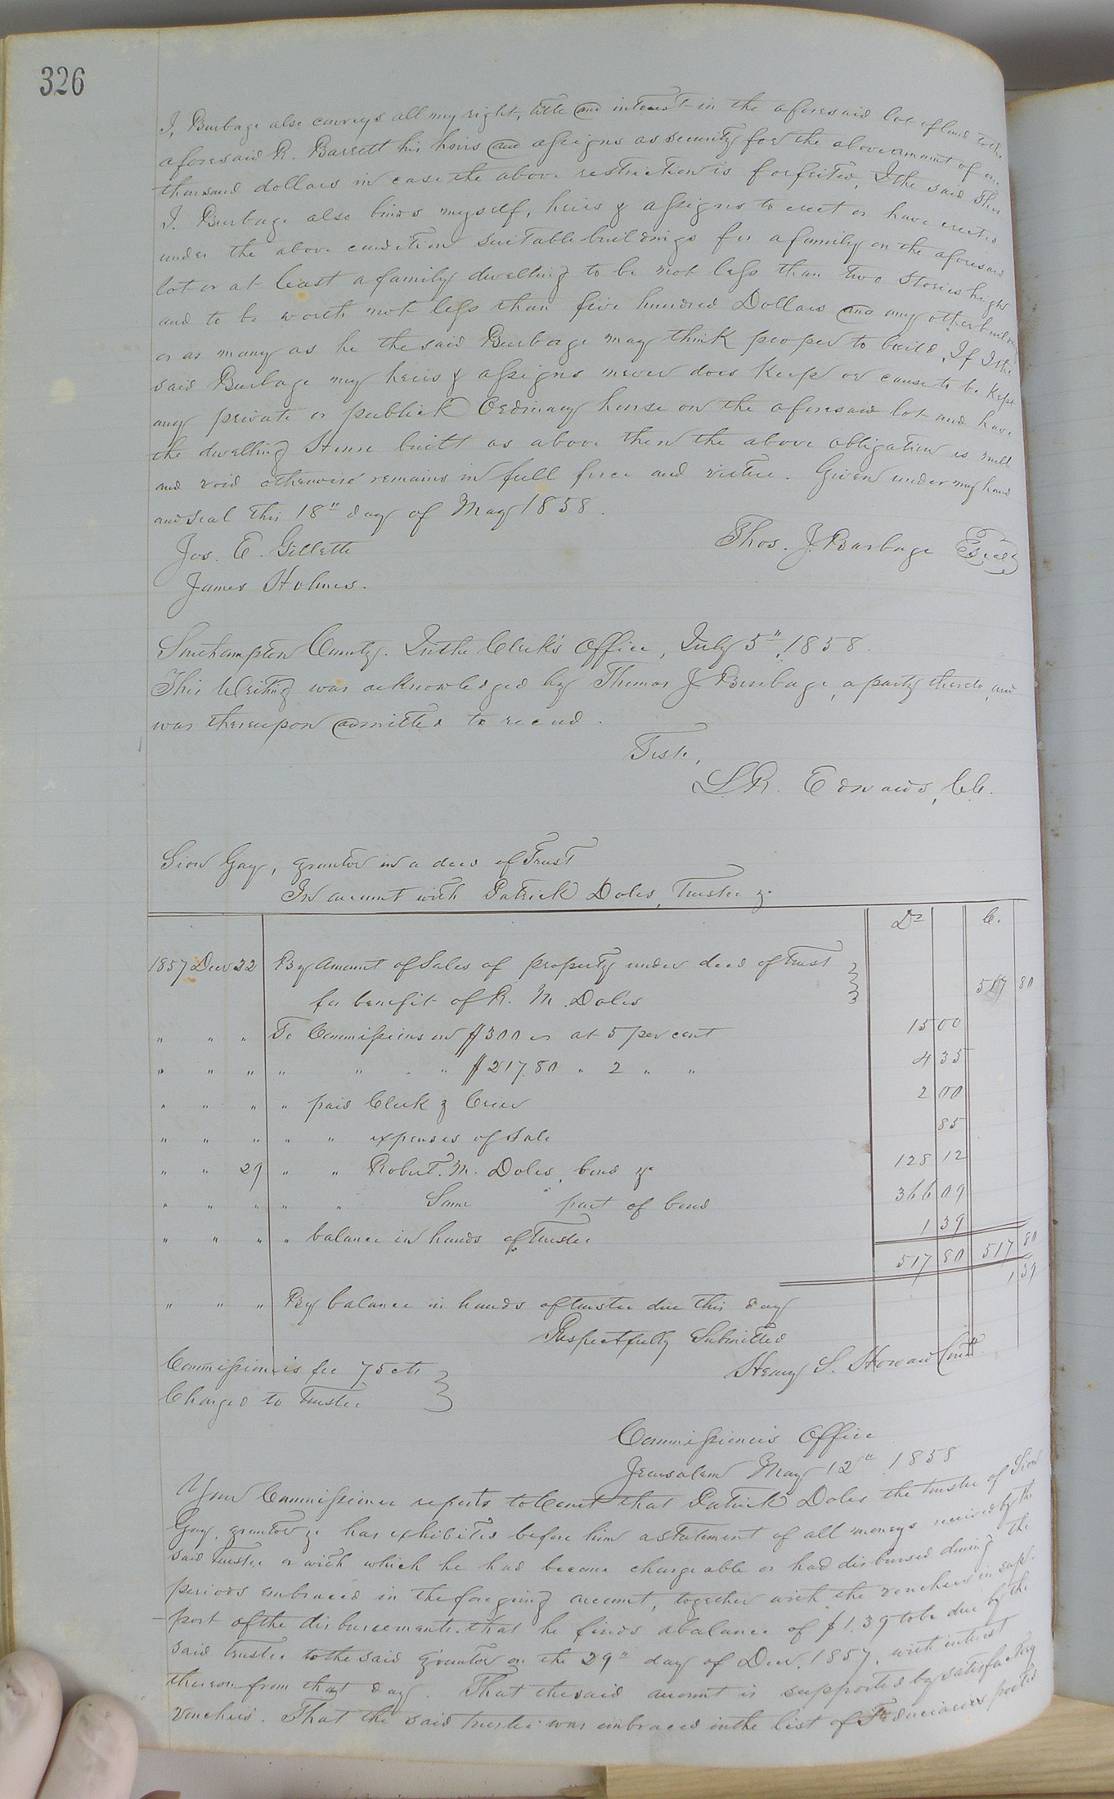 326
J. Burbage also conveys all my right, title and interest in the aforesaid lot of land to the
aforesaid R. Barrett his heirs and assigns as security for the above amount of one
thousand dollars in case the above restriction is forfeited, I the said Thos
J. Burbage also binds myself, heirs & assigns to erect or have erected
under the above condition suitable buildings for a family on the aforesaid
lot or at least a family dwelling to be not less than two stories height
and to be worth not less than five hundred Dollars and any other building
or as many as he the said Burbage may think proper to build, If I the
said Burbage my heirs & assigns never does keep or cause to be kept
any private or publick Ordinary house on the aforesaid lot and have
the dwelling House built as above then the above obligation is null
and void otherwise remains in full force and virtue. Given under my hand
and seal this 18" day of May 1858.
Jos. E. Gillette Thos. J. Burbage Seal
James Holmes.
Southampton County. In the Clerk's Office, July 5", 1858.
This Writing was acknowledged by Thomas J Burbage, a party thereto, and
was thereupon admitted to record.
Teste,
L. R. Edwards, CC.
Sion Gay, grantor in a deed of Trust
In account with Patrick Doles, Trustee &c
Dr C.
1857 Decr 22 By Amount of Sales of property under deed of Trust
for benefit of R. M. Doles 517 80
" " " To Commissions on $300 at 5 per cent 15 00
" " " " " " " $217.80 " 2 " " 4 35
" " " " paid Clerk & Crier 2 00
" " " " " expenses of Sale 85
" " 29 " " Robert. M. Doles, bond &c 128 12
" " " " " Same " part of bond 366 09
" " " " balance in hands of Trustee 1 39
517 80 517 80
" " " By balance in hands of trustee due this day 1 39
Respectfully Submitted
Henry S. Howard Comr
Commissioner's fee 75 cts
Charged to Trustee
Commissioner's Office
Jerusalem May 12" 1858
Your Commissioner reports to Court that Patrick Doles the trustee of Sion
Gay, grantor &c has exhibited before him a statement of all moneys received by the
said Trustee or with which he had become chargeable or had disbursed during the
periods embraced in the foregoing account, together with the vouchers in sup-
port of the disbursements. that he finds a balance of $1.39 to be due by the
said trustee to the said grantor on the 29" day of Decr. 1857, with interest
thereon from that day. That the said account is supported by satisfactory
vouchers. That the said trustee was embraced in the list of Fiduciaries posted